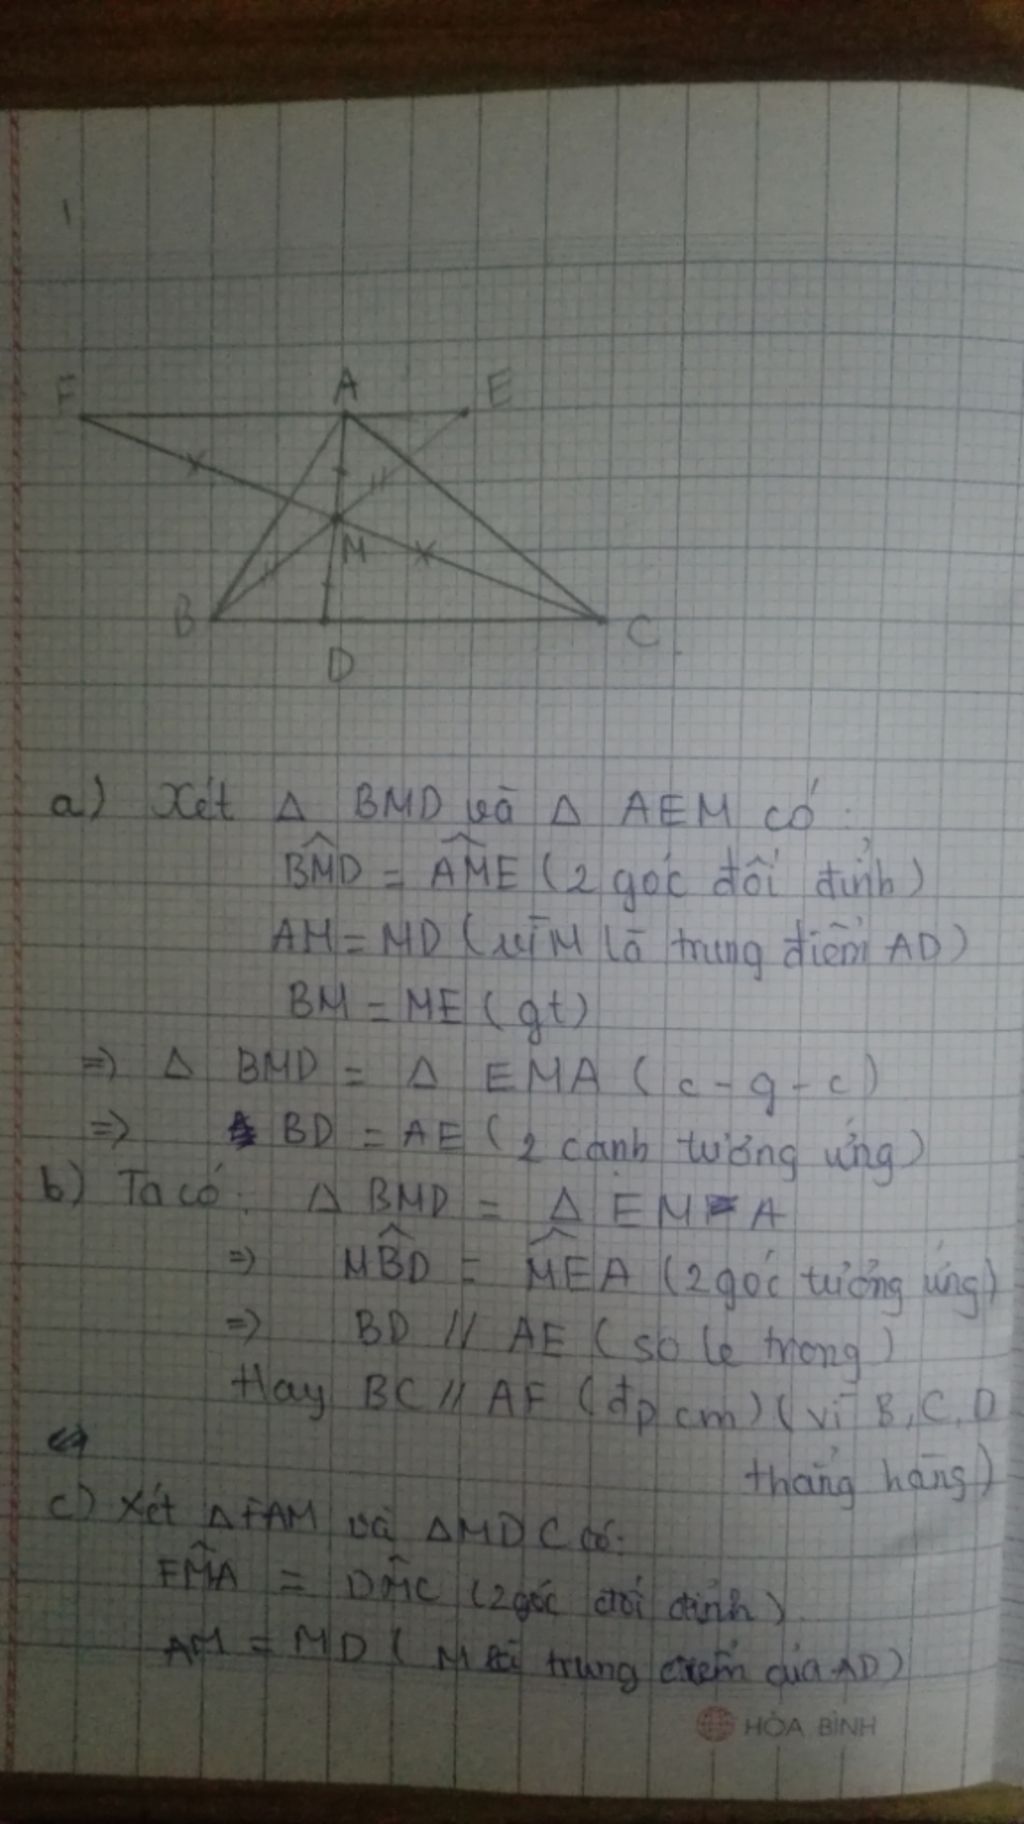 1
F A E
M
B C
D
a) Xét Δ BMD và Δ AEM có:
BM̂D = AM̂E (2 góc đối đỉnh)
AM = MD (vì M là trung điểm AD)
BM = ME (gt)
=> Δ BMD = Δ EMA (c-g-c)
=> BD = AE (2 cạnh tương ứng)
b) Ta có: Δ BMD = Δ EMA
=> MB̂D = MÊA (2 góc tương ứng)
=> BD // AE (so le trong)
Hay BC // AE (đpcm) (vì B, C, D
thẳng hàng)
c) Xét ΔFAM và ΔMDC có:
FM̂A = DM̂C (2 góc đối đỉnh)
AM = MD (M là trung điểm của AD)
HÒA BÌNH